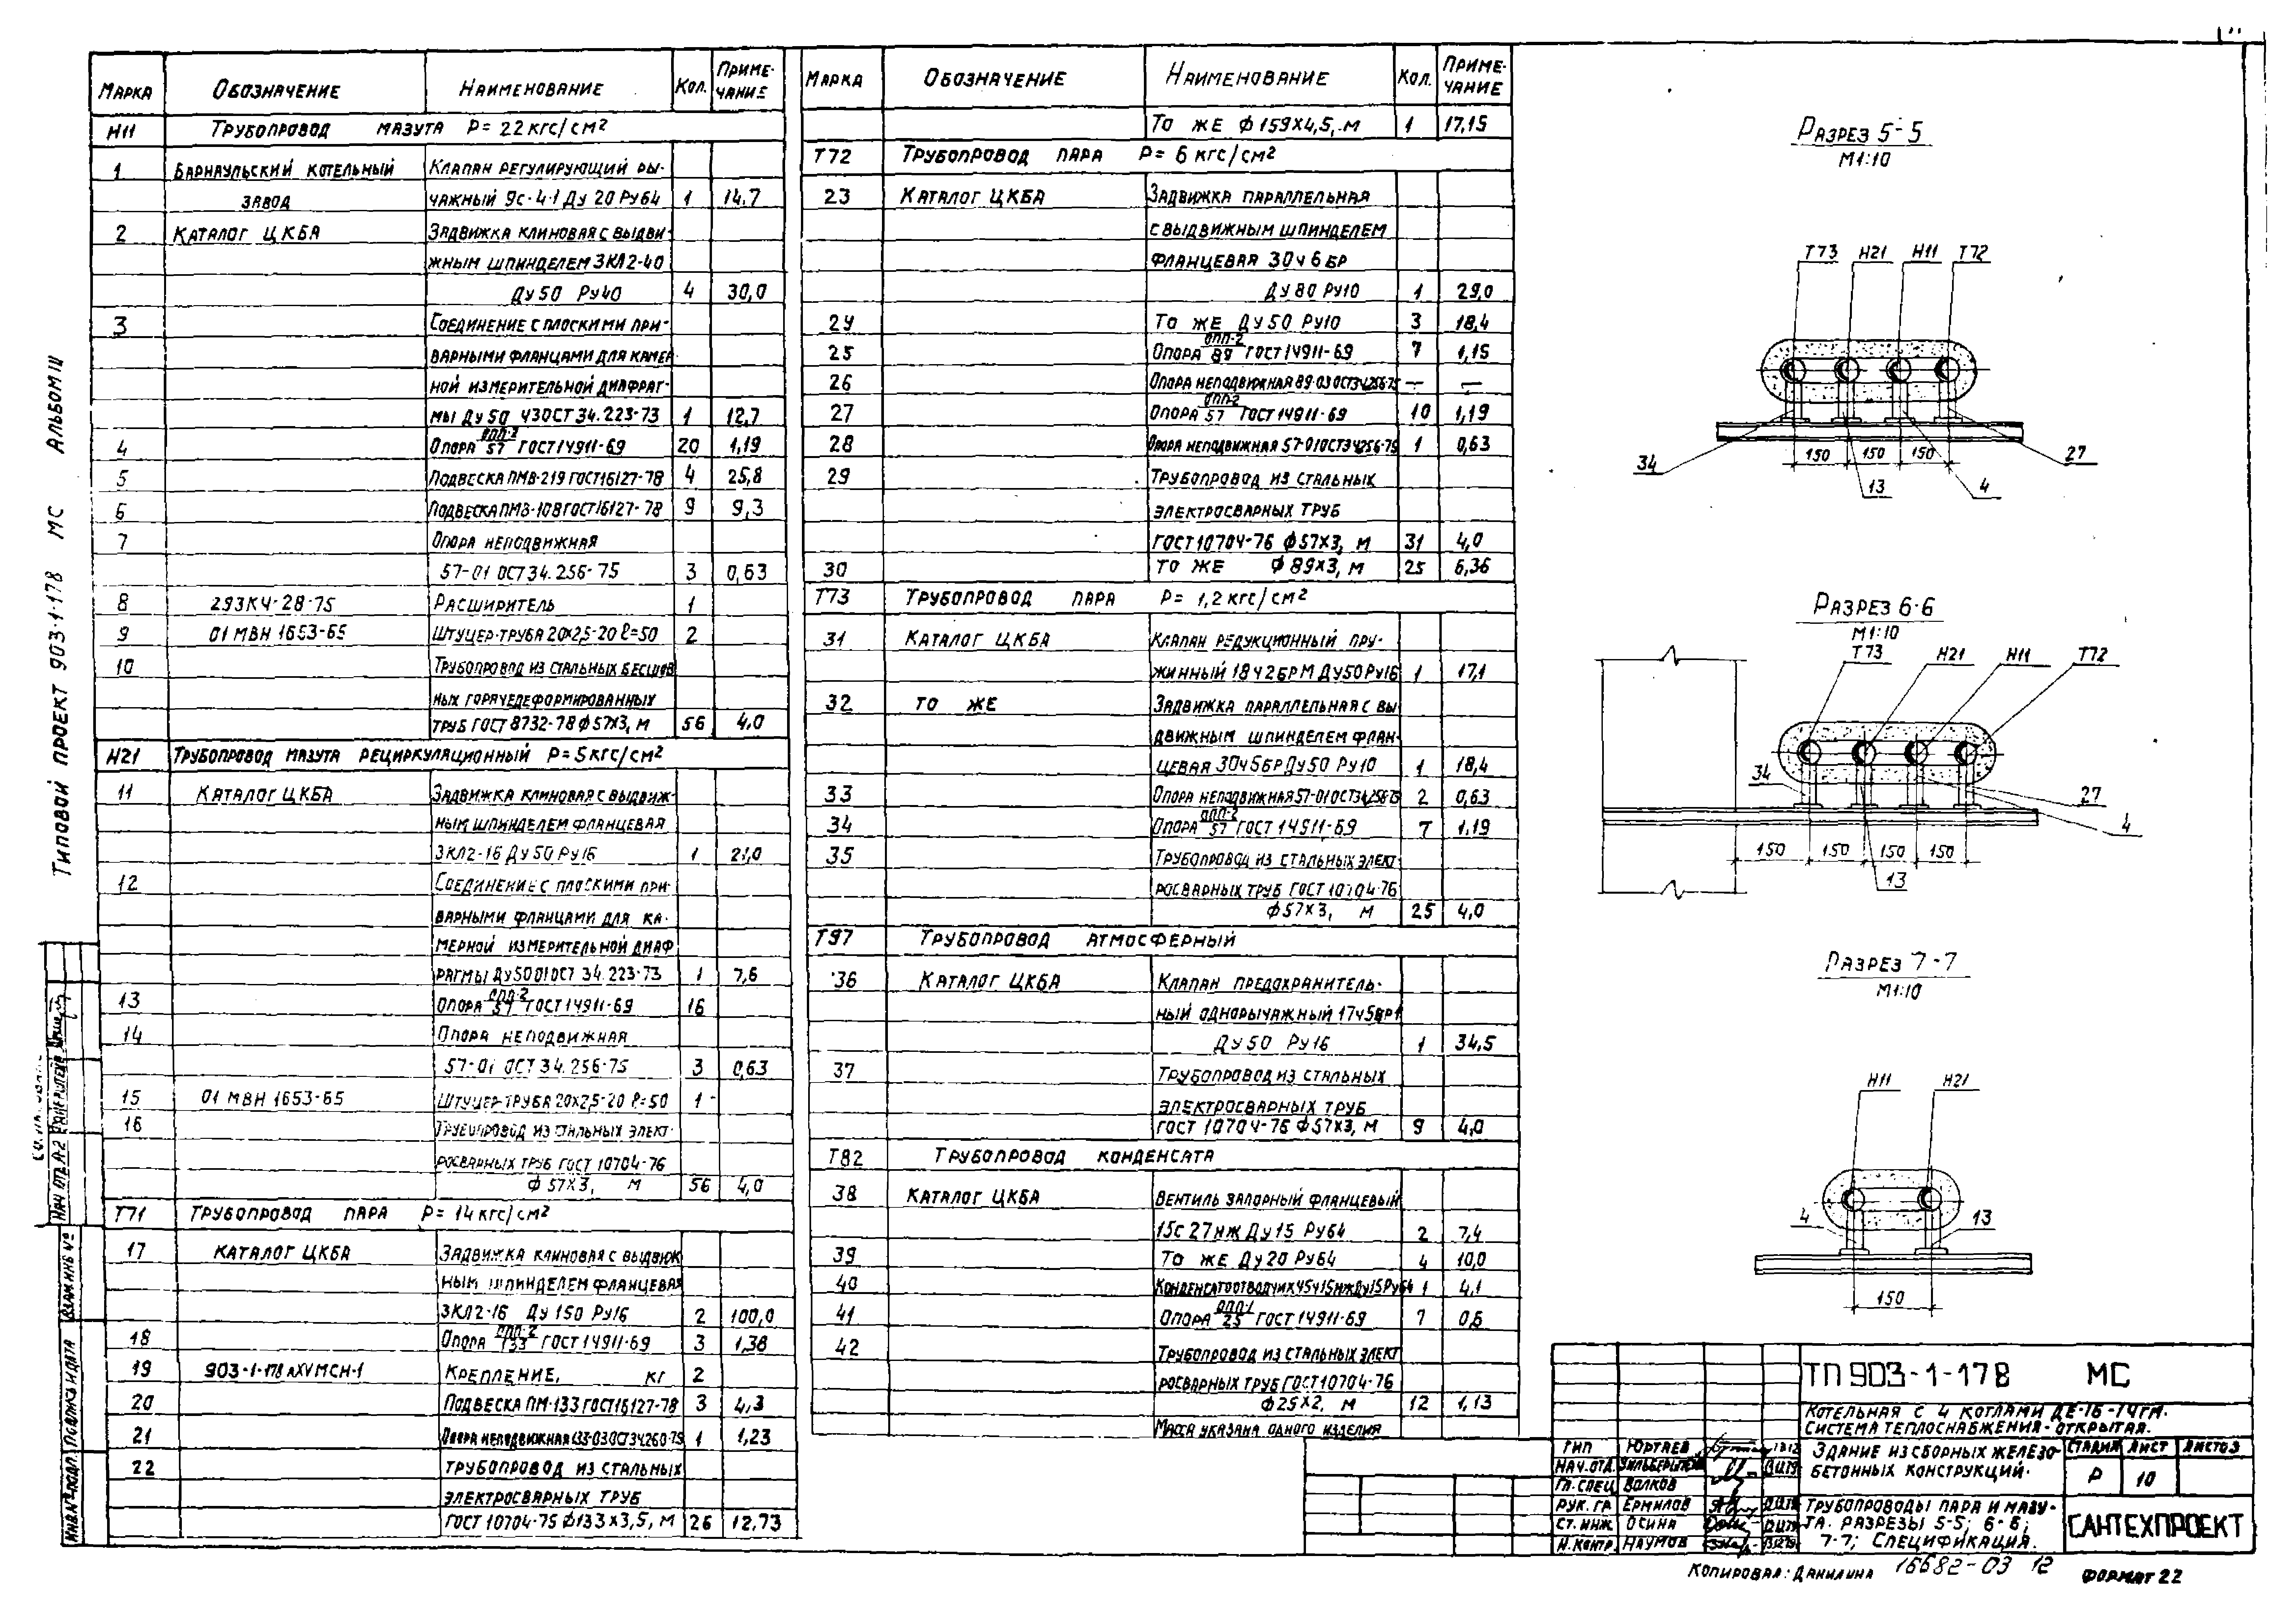 Марка Обозначение Наименование Кол. Приме-чание
Н11 Трубопровод мазута P= 22 кгс/см²
1 Барнаульский котельный Клапан регулирующий ры-
завод чажный 9с-4-1 Ду 20 Ру64 1 14,7
2 Каталог ЦКБА Задвижка клиновая с выдви-
жным шпинделем ЗКЛ2-40
Ду 50 Ру40 4 30,0
3 Соединение с плоскими при-
варными фланцами для камер
ной измерительной диафраг-
мы Ду 50 43 ОСТ 34.223-73 1 12,7
4 Опора ОПП-2/57 ГОСТ 14911-69 20 1,19
5 Подвеска ПМВ-219 ГОСТ 16127-78 4 25,8
6 Подвеска ПМВ-108 ГОСТ 16127-78 9 9,3
7 Опора неподвижная
57-01 ОСТ 34.256-75 3 0,63
8 293КЧ-28-75 Расширитель 1
9 01 МВН 1653-65 Штуцер-труба 20х2,5-20 ℓ=50 2
10 Трубопровод из стальных бесшов
ных горячедеформированных
труб ГОСТ 8732-78 ф57х3, м 56 4,0
Н21 Трубопровод мазута рециркуляционный P=5 кгс/см²
11 Каталог ЦКБА Задвижка клиновая с выдвиж-
ным шпинделем фланцевая
ЗКЛ2-16 Ду 50 Ру16 1 21,0
12 Соединение с плоскими при-
варными фланцами для ка-
мерной измерительной диаф
рагмы Ду50 01 ОСТ 34.223-73 1 7,6
13 Опора ОПП-2/57 ГОСТ 14911-69 16
14 Опора неподвижная
57-01 ОСТ 34.256-75 3 0,63
15 01 МВН 1653-65 Штуцер-труба 20х2,5-20 ℓ=50 1
16 Трубопровод из стальных элект-
росварных труб ГОСТ 10704-76
ф 57х3, м 56 4,0
Т71 Трубопровод пара P= 14 кгс/см²
17 Каталог ЦКБА Задвижка клиновая с выдвиж
ным шпинделем фланцевая
ЗКЛ2-16 Ду 150 Ру16 2 100,0
18 Опора ОПП-2/133 ГОСТ 14911-69 3 1,38
19 903-1-178 АXV МСН-1 Крепление, кг 2
20 Подвеска ПМ-133 ГОСТ 16127-78 3 4,3
21 Опора неподвижная 133-03 ОСТ 34260-75 1 1,23
22 Трубопровод из стальных
электросварных труб
ГОСТ 10704-75 ф133х3,5, м 26 12,73
Марка Обозначение Наименование Кол. Приме-чание
То же ф 159х4,5, м 1 17,15
Т72 Трубопровод пара P= 6 кгс/см²
23 Каталог ЦКБА Задвижка параллельная
с выдвижным шпинделем
фланцевая 30ч 6 бр
Ду 80 Ру10 1 29,0
24 То же Ду 50 Ру10 3 18,4
25 Опора ОПП-2/89 ГОСТ 14911-69 7 1,15
26 Опора неподвижная 89-03 ОСТ34256-75 — —
27 Опора ОПП-2/57 ГОСТ 14911-69 10 1,19
28 Опора неподвижная 57-01 ОСТ34256-75 1 0,63
29 Трубопровод из стальных
электросварных труб
ГОСТ 10704-76 ф57х3, м 31 4,0
30 То же ф89х3, м 25 6,36
Т73 Трубопровод пара P= 1,2 кгс/см²
31 Каталог ЦКБА Клапан редукционный пру-
жинный 18ч2бр М Ду50 Ру16 1 17,1
32 То же Задвижка параллельная с вы
движным шпинделем флан-
цевая 30ч6бр Ду 50 Ру10 1 18,4
33 Опора неподвижная 57-01 ОСТ34.256-75 2 0,63
34 Опора ОПП-2/57 ГОСТ 14911-69 7 1,19
35 Трубопровод из стальных элект-
росварных труб ГОСТ 10704-76
ф57х3, м 25 4,0
Т97 Трубопровод атмосферный
36 Каталог ЦКБА Клапан предохранитель-
ный однорычажный 17ч5бр1
Ду 50 Ру16 1 34,5
37 Трубопровод из стальных
электросварных труб
ГОСТ 10704-76 ф57х3, м 9 4,0
Т82 Трубопровод конденсата
38 Каталог ЦКБА Вентиль запорный фланцевый
15с 27нж Ду 15 Ру64 2 7,4
39 То же Ду 20 Ру64 4 10,0
40 Конденсатоотводчик 45ч15нж Ду15 Ру64 1 4,1
41 Опора ОПП-1/25 ГОСТ 14911-69 7 0,6
42 Трубопровод из стальных элект
росварных труб ГОСТ 10704-76
ф25х2, м 12 1,13
Масса указана одного изделия
Разрез 5-5
М1:10
Т73 Н21 Н11 Т72
34 150 150 150 27
13 4
Разрез 6-6
М1:10
Т73 Н21 Н11 Т72
34 27
4
150 150 150 150
13
Разрез 7-7
М1:10
Н11 Н21
4 13
150
Типовой проект 903-1-178 МС Альбом III
Нач. отд. А-2
Взам. инв. №
Подпись и дата
Инв. № подл.
ТП 903-1-178 МС
Котельная с 4 котлами ДЕ-16-14ГМ.
Система теплоснабжения - открытая.
Здание из сборных железо-
бетонных конструкций.
Стадия Лист Листов
Р 10
Трубопроводы пара и мазу-
та. Разрезы 5-5; 6-6;
7-7; Спецификация.
Сантехпроект
ГИП Юртаев
Нач. отд.
Гл. спец. Волков
Рук. гр. Ермилов
Ст. инж. Осина
Н. контр. Наумов
Копировал: Данилина 16682-03 12 Формат 22